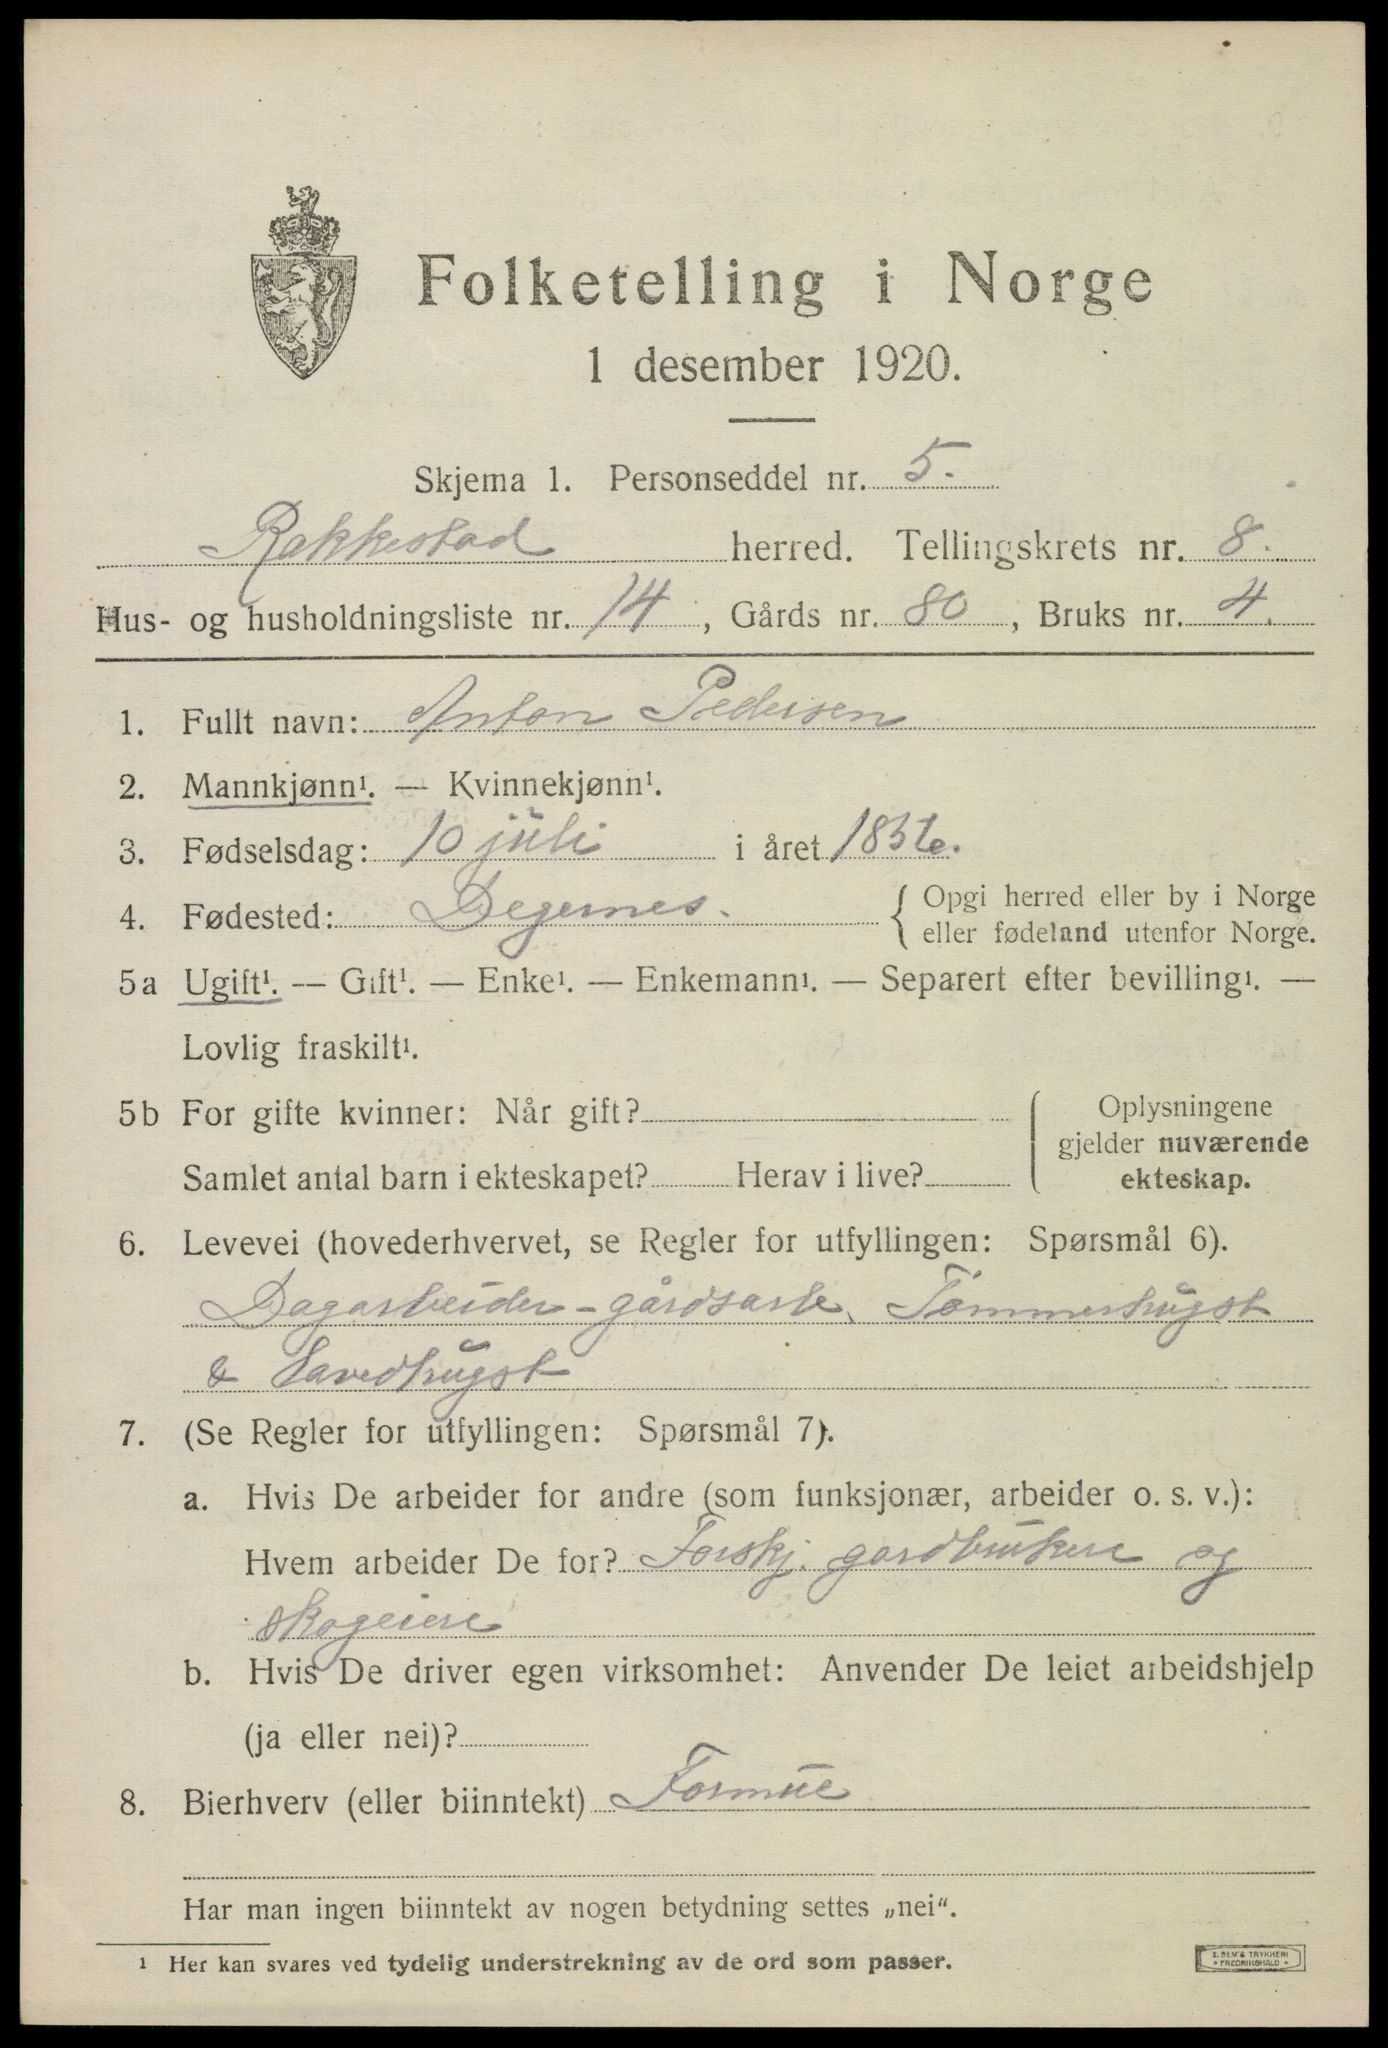 Folketelling i Norge
1 desember 1920.
Skjema 1. Personseddel nr. 5.
Rakkestad herred. Tellingskrets nr. 8.
Hus- og husholdningsliste nr. 14, Gårds nr. 80, Bruks nr. 4.
1. Fullt navn: Anton Pedersen
2. Mannkjønn¹. — Kvinnekjønn¹.
3. Fødselsdag: 10 juli i året
4. Fødested: Degernes. { Opgi herred eller by i Norge
eller fødeland utenfor Norge.
5a Ugift¹. — Gift¹. — Enke¹. — Enkemann¹. — Separert efter bevilling¹. —
Lovlig fraskilt¹.
5b For gifte kvinner: Når gift?
Samlet antal barn i ekteskapet? Herav i live?
Oplysningene
gjelder nuværende
ekteskap.
6. Levevei (hovederhvervet, se Regler for utfyllingen: Spørsmål 6).
Dagarbeider - gårdsarb. Tømmerhugst
& Vavedhugst
7. (Se Regler for utfyllingen: Spørsmål 7).
a. Hvis De arbeider for andre (som funksjonær, arbeider o. s. v.):
Hvem arbeider De for? Forskj. gardbrukere og
skogeiere
b. Hvis De driver egen virksomhet: Anvender De leiet arbeidshjelp
(ja eller nei)?
8. Bierhverv (eller biinntekt) Formue
Har man ingen biinntekt av nogen betydning settes „nei“.
¹ Her kan svares ved tydelig understrekning av de ord som passer.
E. SEM'S TRYKKERI
* FREDRIKSHALD *